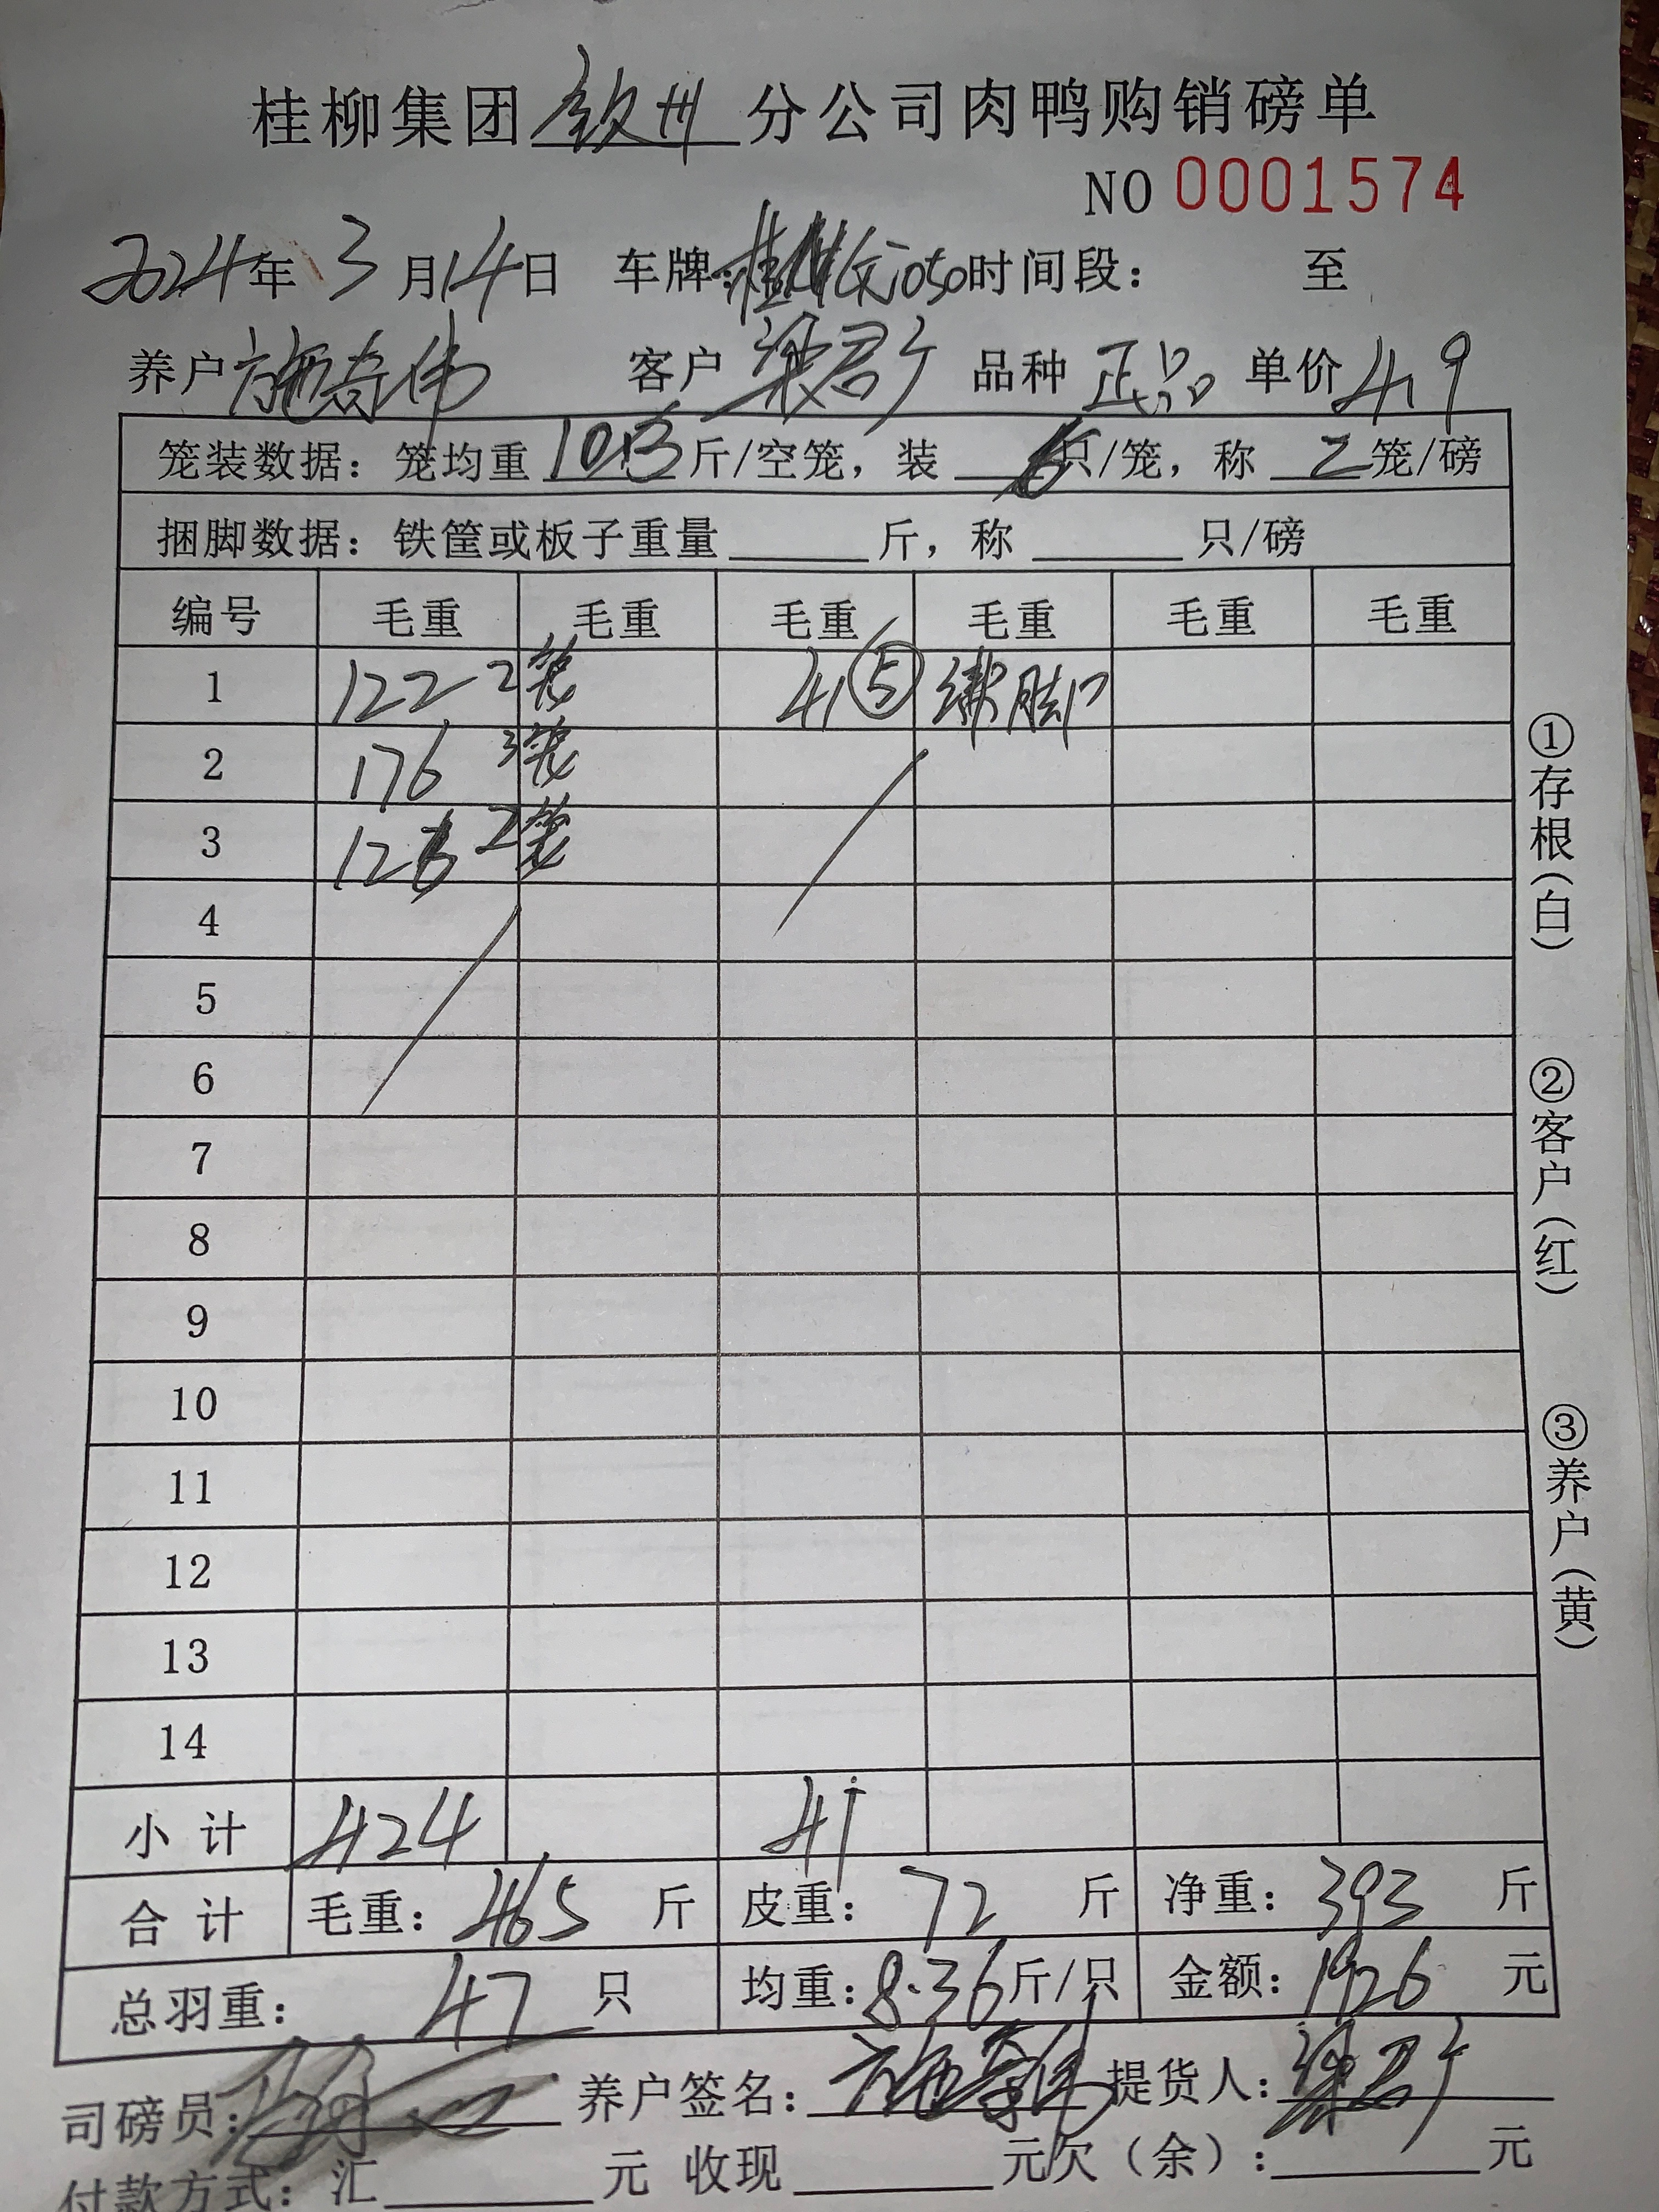 桂柳集团钦州分公司肉鸭购销磅单
NO 0001574
2024年3月14日 车牌: 050 时间段: 至
养户 施奇伟 客户 梁君广 品种 正品 单价 4.9
笼装数据: 笼均重 10.3 斤/空笼, 装 6 只/笼, 称 2 笼/磅
捆脚数据: 铁筐或板子重量 斤, 称 只/磅
编号 毛重 毛重 毛重 毛重 毛重 毛重
1 122 2笼 41 ⑤ 绑脚
2 176 3笼
3 126 2笼
4
5
6
7
8
9
10
11
12
13
14
小计 424 41
合计 毛重: 465 斤 皮重: 72 斤 净重: 393 斤
总羽重: 47 只 均重: 8.36 斤/只 金额: 1926 元
司磅员: 养户签名: 施奇伟 提货人: 梁君广
付款方式: 汇 元 收现 元欠(余): 元
①存根(白)
②客户(红)
③养户(黄)